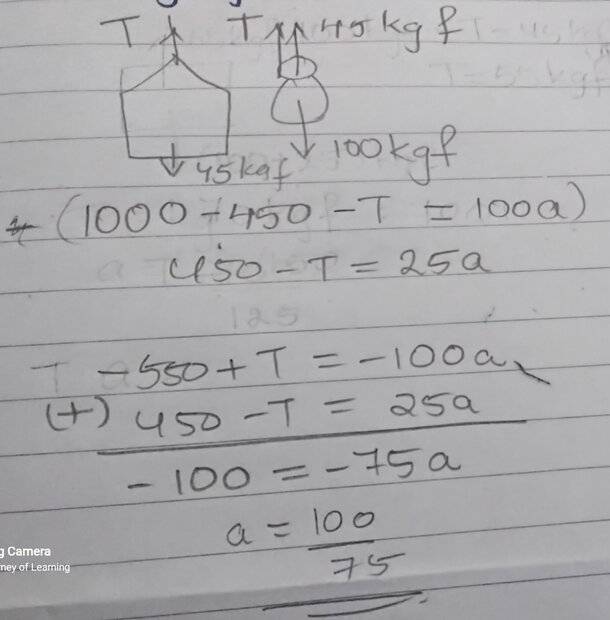 T T 45 kg f
45 kgf 100 kgf
(1000 - 450 - T = 100a)
450 - T = 25a
125
- 550 + T = - 100a
(+) 450 - T = 25a
- 100 = - 75a
a = 100
75
g Camera
ney of Learning